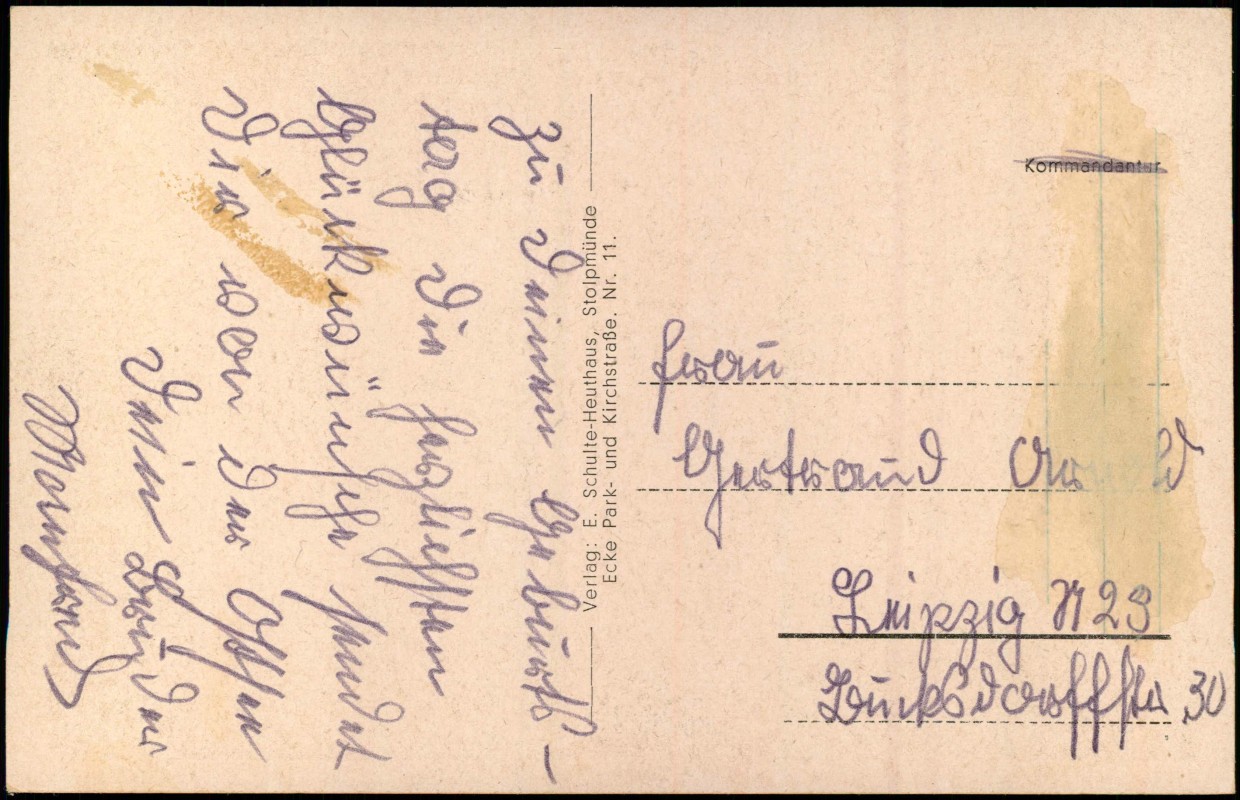 Zu Deinem Geburts-
tag die herzlichsten
Glückwünsche sendet
Dir von der Ostsee
Dein Bruder
Manfred
Verlag: E. Schulte-Heuthaus, Stolpmünde
Ecke Park- und Kirchstraße. Nr. 11.
Kommandantur
Frau
Gertraud Arnold
Leipzig N 23
Bucksdorffstr. 30